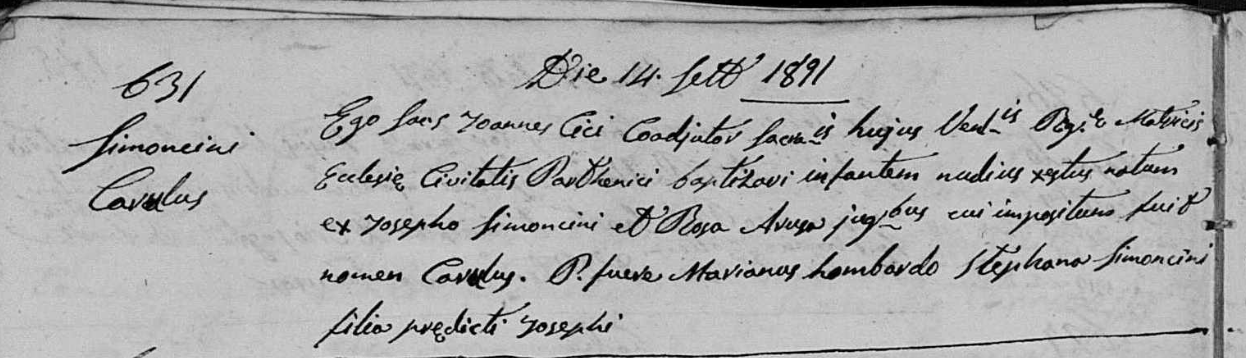 631
Simoncini
Carolus
Die 14. Sett 1891
Ego Sacs Joannes Cici Coadjutor Sacra.is hujus Ven.is Regi.e Matricis
Ecclesię Civitatis Parthenici baptizavi infantem nudius natum
ex Josepho Simoncini et Rosa jug.bus cui impositum fuit
nomen Carolus. P. fuere Marianus Lombardo Stephana Simoncini
filia prędicti Josephi